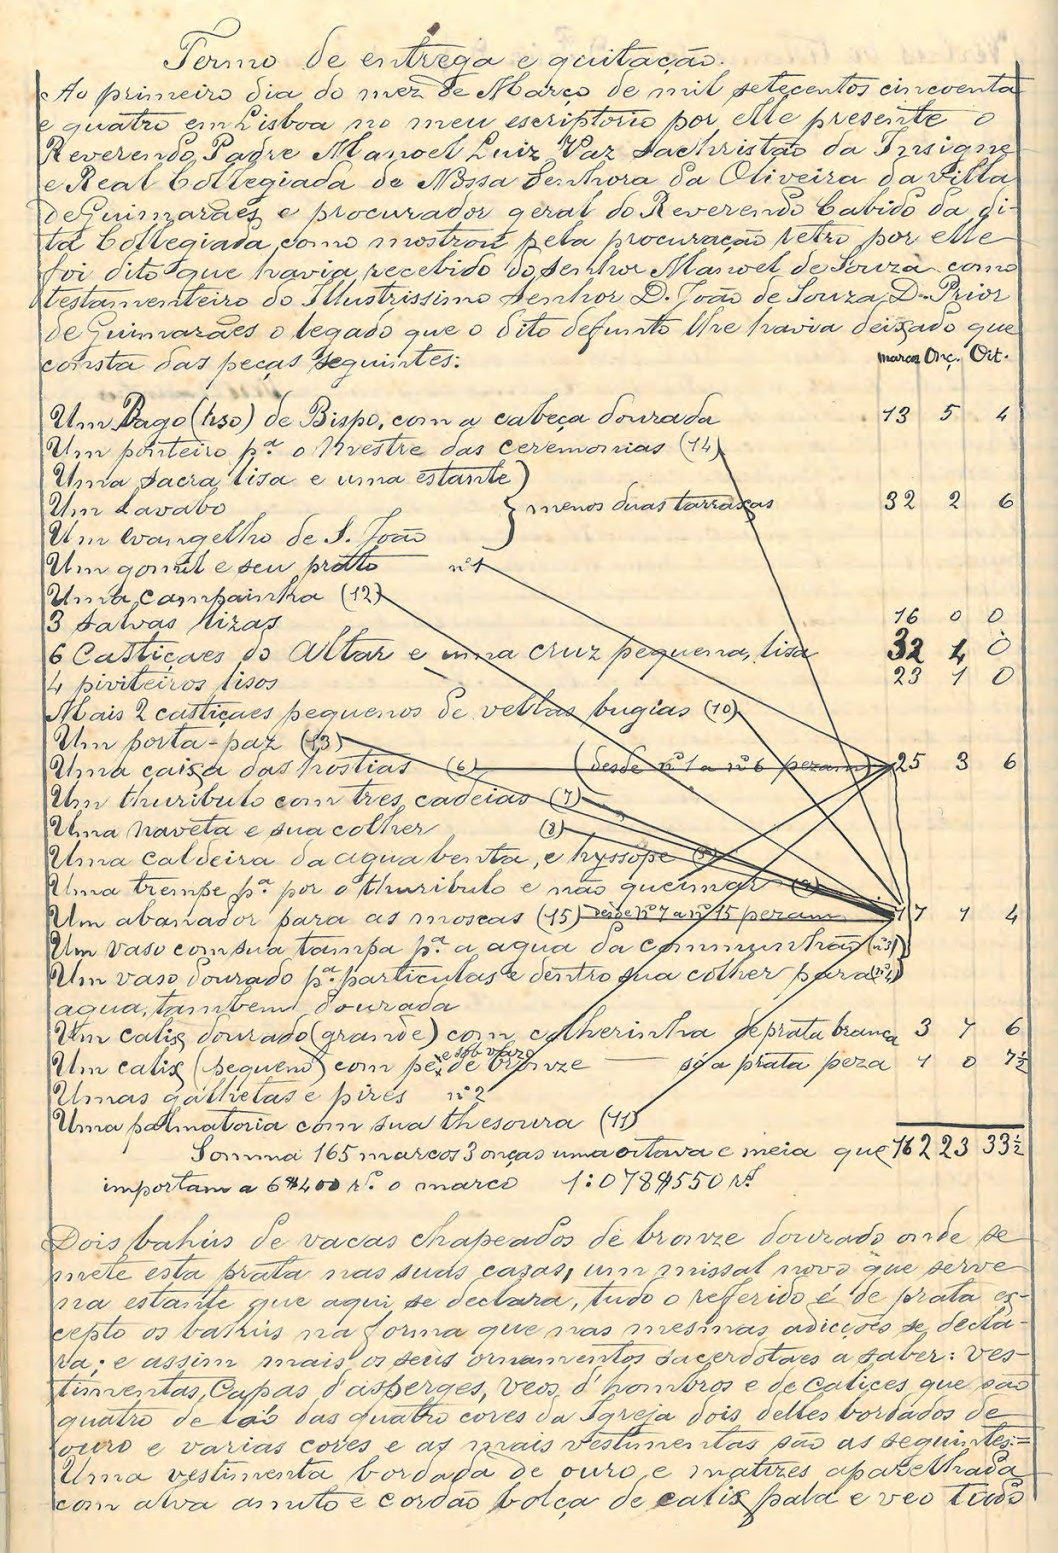 Termo de entrega e quitação.
Ao primeiro dia do mez de Março de mil setecentos cincoenta
e quatro em Lisboa no meu escriptorio por elle presente o
Reverendo Padre Manoel Luiz Vaz Sachristão da Insigne
e Real Collegiada de Nossa Senhora da Oliveira da Villa
de Guimarães, e procurador geral do Reverendo Cabido da di-
ta Collegiada, como mostrou pela procuração retro por elle
foi dito que havia recebido do Senhor Manoel de Souza como
testamenteiro do Illustrissimo Senhor D. João de Souza, D. Prior
de Guimarães o legado que o dito defunto lhe havia deixado que
consta das peças seguintes:
marcos Onç. Oit.
Um Bago (liso) de Bispo, com a cabeça dourada 13 5 4
Um ponteiro pª o Mestre das ceremonias (14)
Uma Sacra lisa e uma estante)
Um Lavabo } menos duas tarraxas 32 2 6
Um evangelho de S. João
Um gomil e seu pratto nº 1
Uma campainha (12)
3 Salvas lizas 16 0 0
6 Castiçaes do Altar e uma cruz pequena, lisa 32 4 0
4 piviteiros lisos 23 1 0
Mais 2 castiçaes pequenos de vellas bugias (10)
Um porta-paz (13)
Uma caixa das hostias (6) (desde nº 1 a nº 6 pezam) 25 3 6
Um thuribulo com tres cadeias (7)
Uma naveta e sua colher (8)
Uma caldeira da agua benta, e hyssope
Uma trempe pª por o thuribulo e não queimar
Um abanador para as moscas (15) desde nº 7 a nº 15 pezam 17 1 4
Um vaso com sua tampa pª a agua da communhão (nº 3)
Um vaso dourado pª particulas e dentro sua colher para (nº 4)
agua, tambem dourada
Um calix dourado (grande) com colherinha de prata branca 3 7 6
Um calix (pequeno) com pe, e sob vazo de bronze — só a prata peza 1 0 7½
Umas galhetas e pires nº 2
Uma palmatoria com sua thesoura (11)
Somma 165 marcos 3 onças uma oitava e meia que 162 23 33½
importam a 6$400 rs. o marco 1:078$550 rs
Dois bahús de vacas chapeados de bronze dourado onde se
mete esta prata nas suas caxas, um missal novo que serve
na estante que aqui se declara, tudo o referido é de prata ex-
cepto os bahús na forma que nas mesmas adicções se decla-
ra; e assim mais os seus ornamentos sacerdotaes a saber: ves-
timentas, Capas d'asperges, veos d'hombros e de calices que são
quatro de das quatro côres da Igreja dois delles bordados de
ouro e varias cores e as mais vestimentas são as seguintes:=
Uma vestimenta bordada de ouro e matizes aparelhada
com alva amito e cordão bolça de calix pala e veo tudo